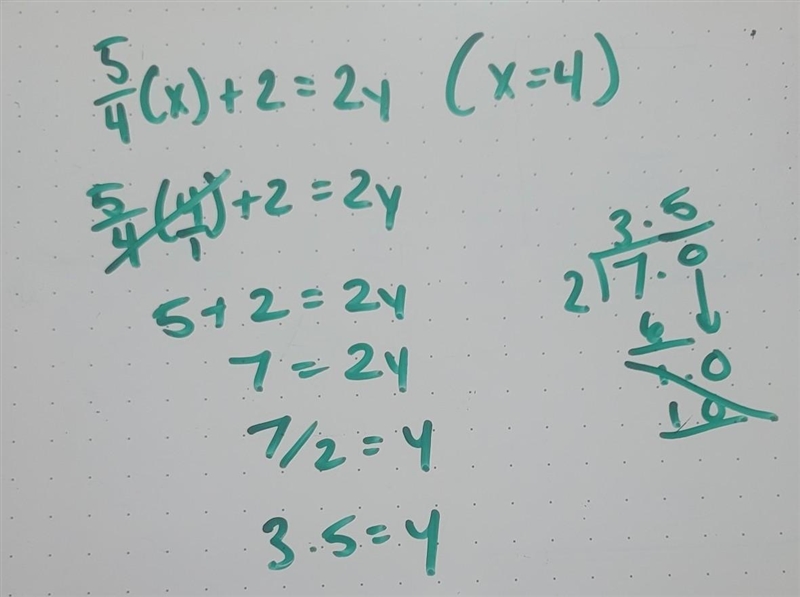 5/4(x)+2=2y (x=4)
5/4(4/1)+2=2y
5+2=2y
7=2y
7/2=y
3.5=y
3.5
2 7.0
6
1.0
1 0